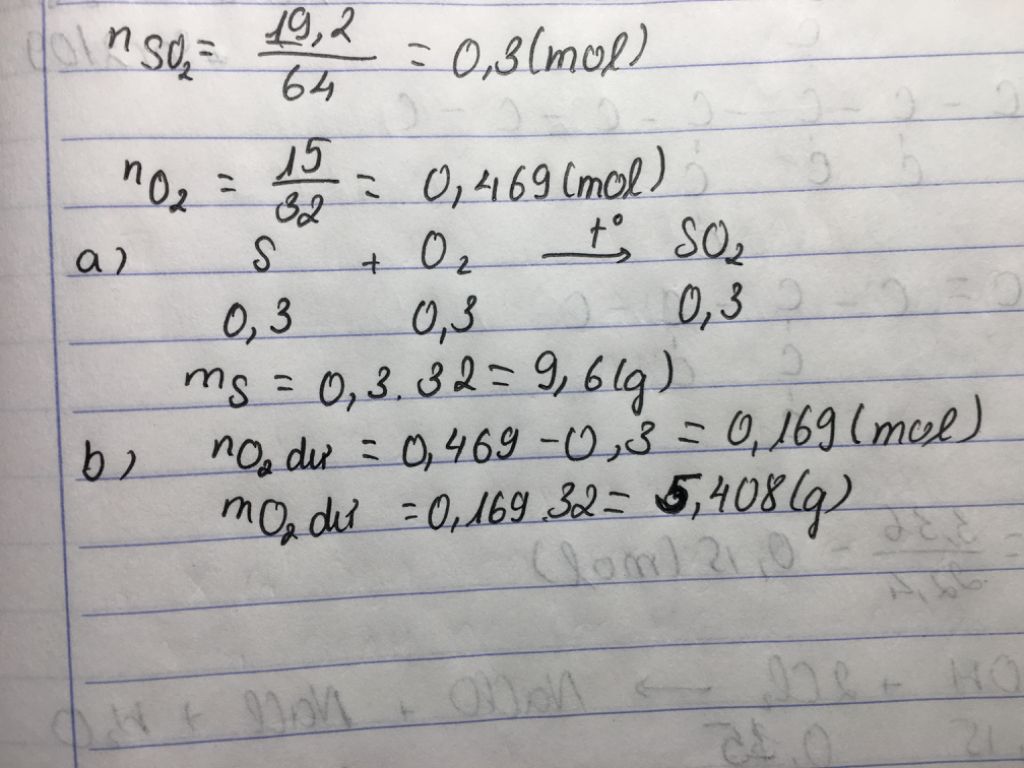 nSO₂ = 19,2/64 = 0,3 (mol)
nO₂ = 15/32 = 0,469 (mol)
a) S + O₂ —t°→ SO₂
0,3 0,3 0,3
mS = 0,3 . 32 = 9,6 (g)
b) nO₂ dư = 0,469 - 0,3 = 0,169 (mol)
mO₂ dư = 0,169 . 32 = 5,408 (g)